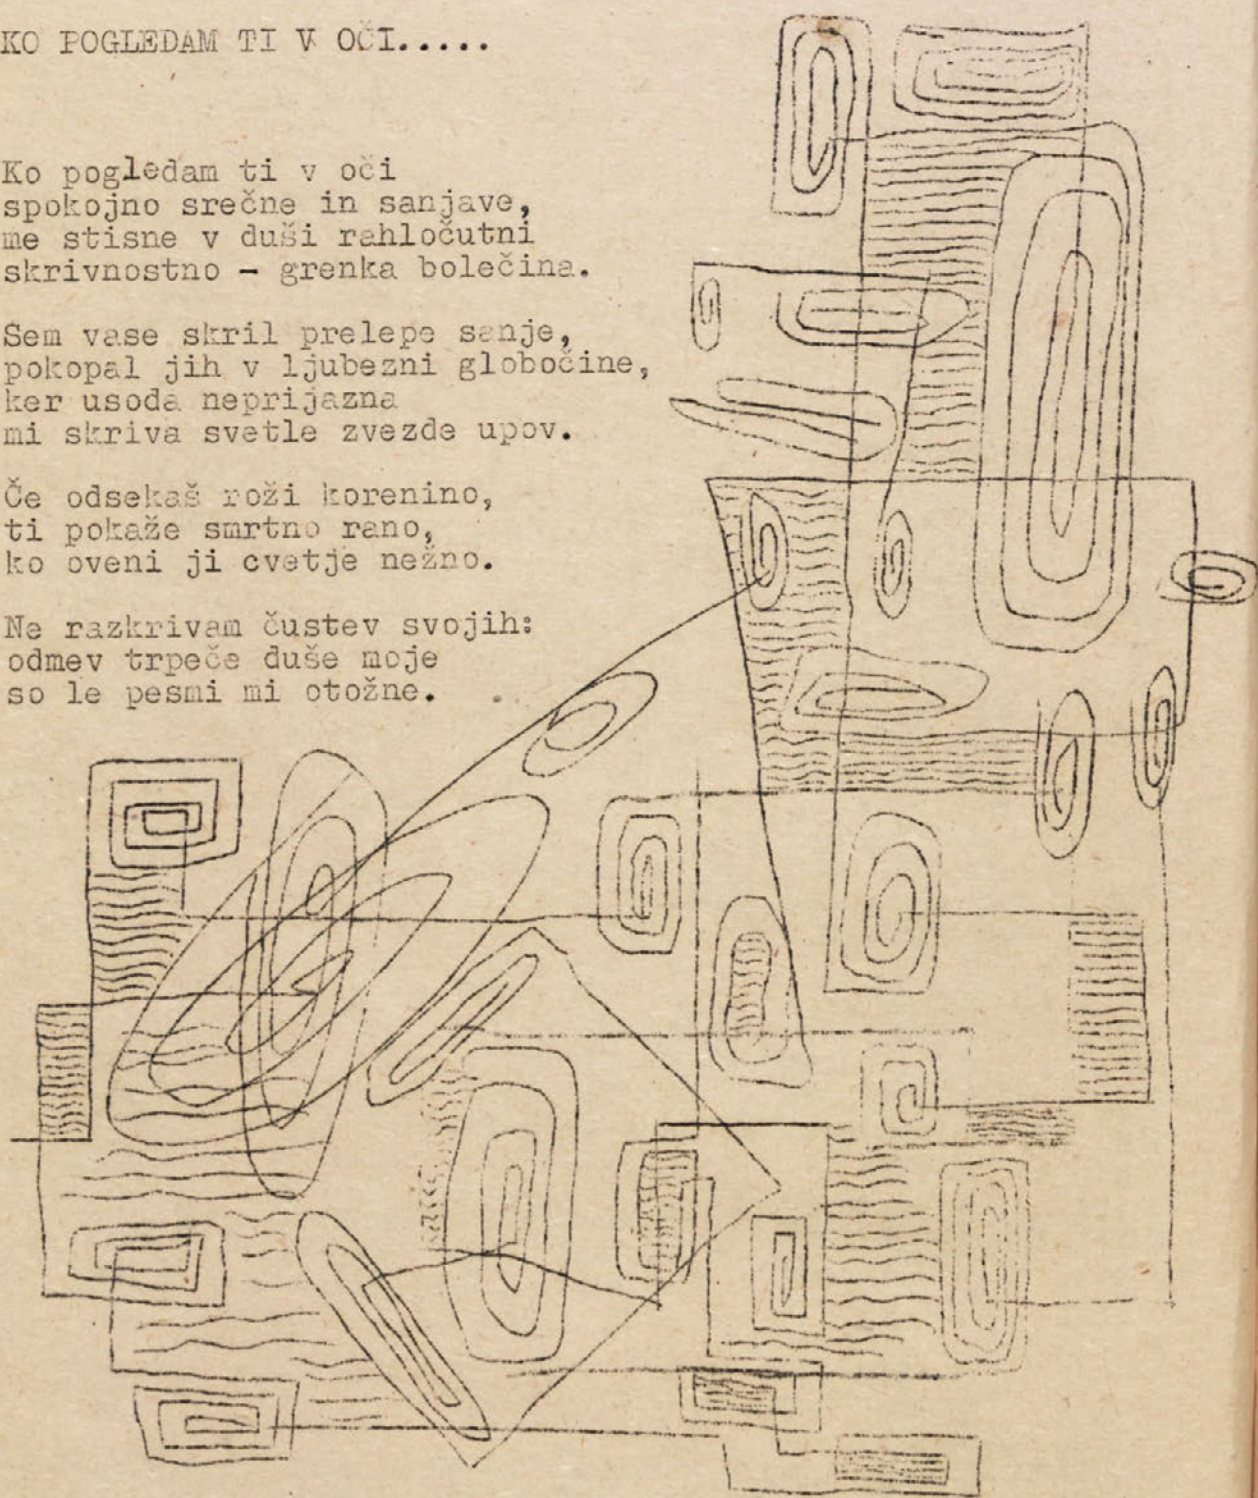 KO POGLEDAM TI V OČI.....
Ko pogledam ti v oči
spokojno srečne in sanjave,
me stisne v duši rahločutni
skrivnostno - grenka bolečina.
Sem vase skril prelepe sanje,
pokopal jih v ljubezni globočine,
ker usoda neprijazna
mi skriva svetle zvezde upov.
Če odsekaš roži korenino,
ti pokaže smrtno rano,
ko oveni ji cvetje nežno.
Ne razkrivam čustev svojih:
odmev trpeče duše moje
so le pesmi mi otožne.